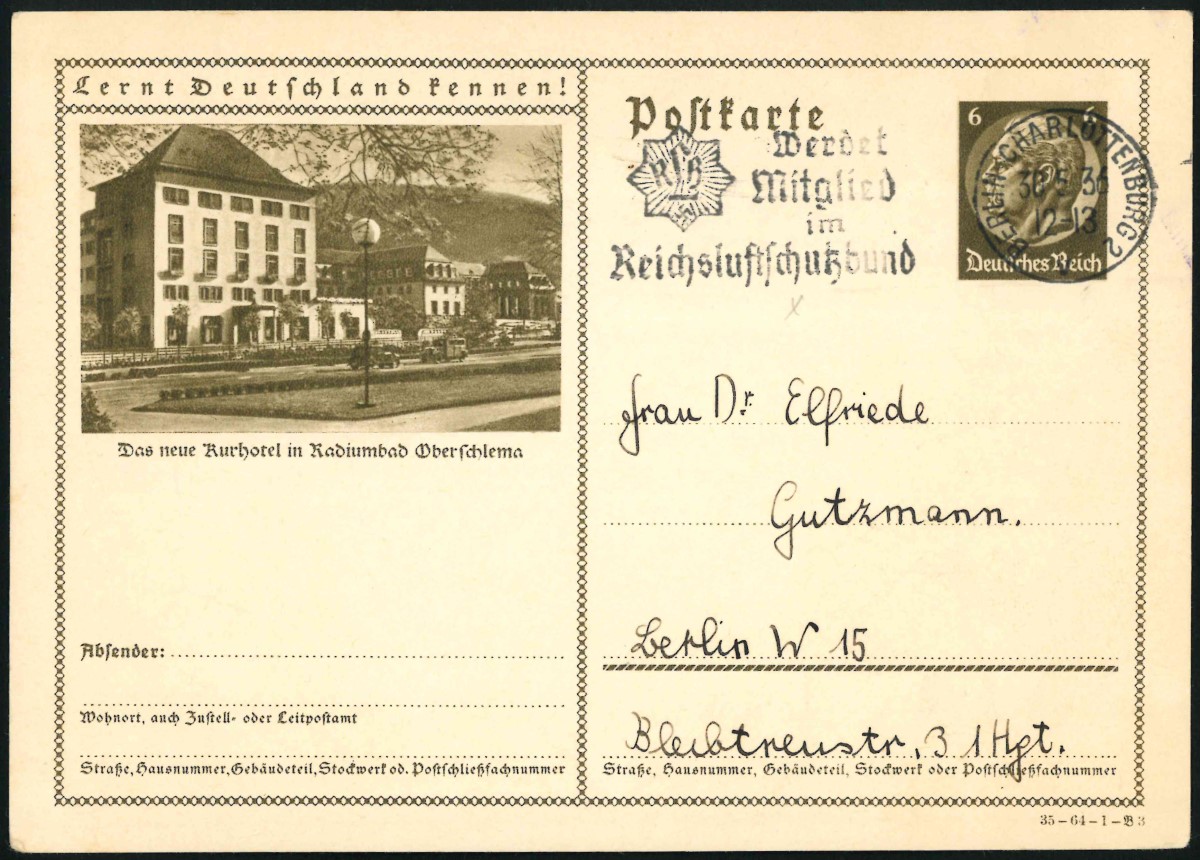 Lernt Deutschland kennen!
Das neue Kurhotel in Radiumbad Oberschlema
Absender:
Wohnort, auch Zustell- oder Leitpostamt
Straße, Hausnummer, Gebäudeteil, Stockwerk od. Postschließfachnummer
Postkarte
RLB
Werdet
Mitglied
im
Reichsluftschutzbund
6 6
Deutsches Reich
BERLIN-CHARLOTTENBURG 2
30.5.36
12-13
Frau Dr. Elfriede
Gutzmann.
Berlin W 15
Bleibtreustr. 3 1 Hgt.
Straße, Hausnummer, Gebäudeteil, Stockwerk oder Postschließfachnummer
35-64-1-B3